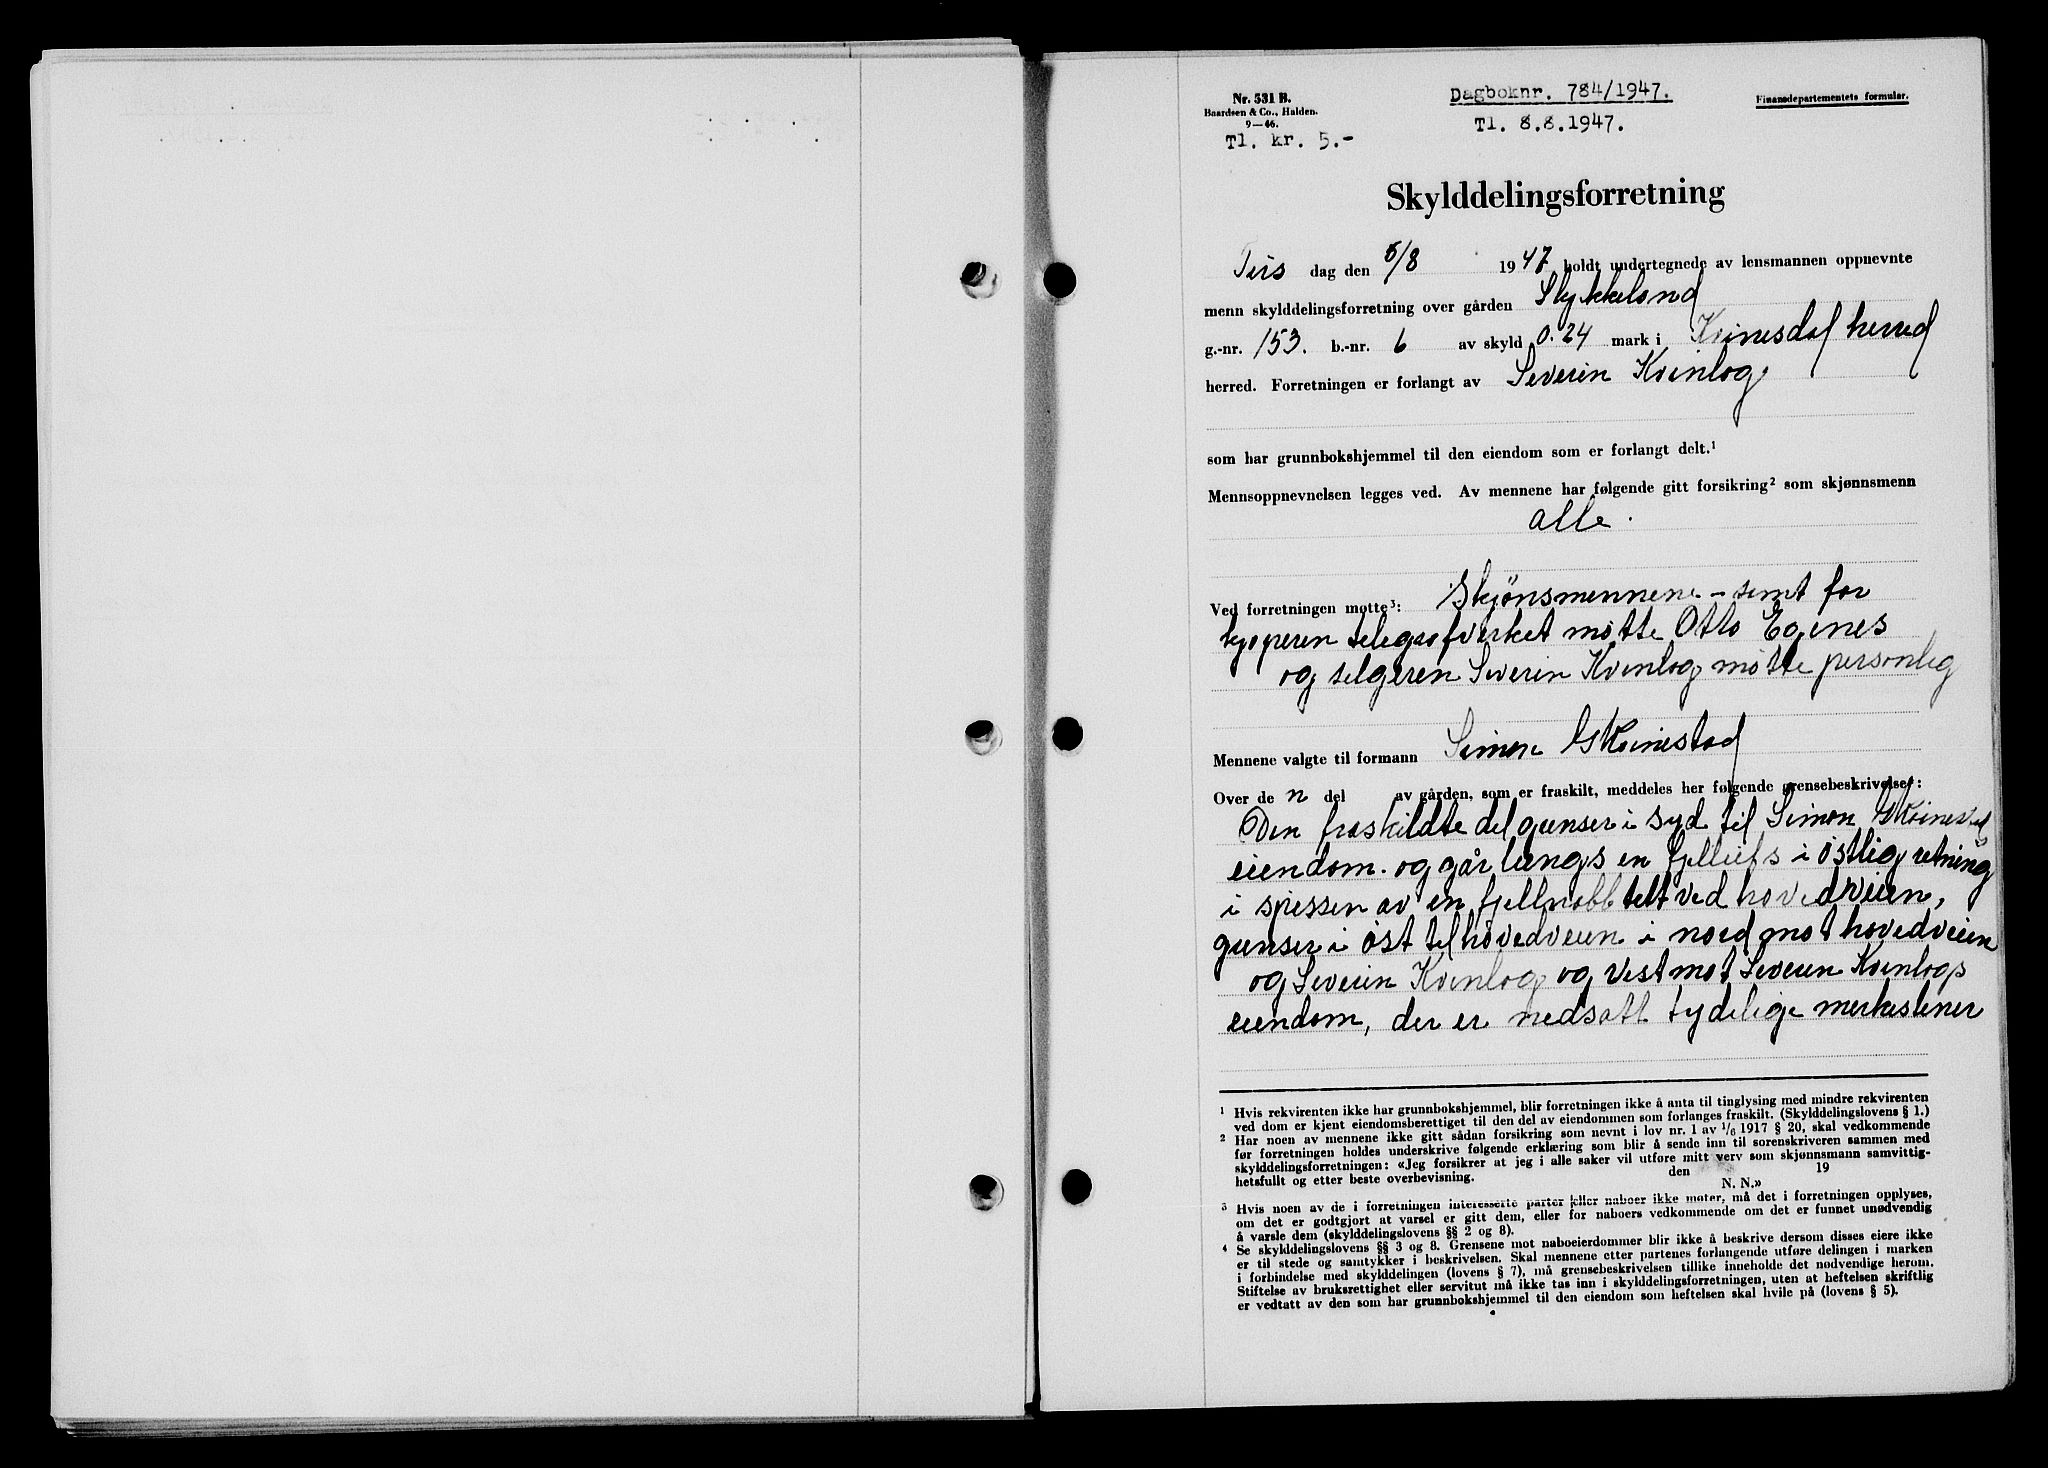 Nr. 531 B.
Baardsen & Co., Halden.
9—46.
Tl. kr. 5.-
Dagboknr. 784/1947.
Tl. 8.8.1947.
Finansdepartementets formular.
Skylddelingsforretning
Tirs dag den 5/8 1947 holdt undertegnede av lensmannen oppnevnte
menn skylddelingsforretning over gården Stykkeland
g.-nr. 153. b.-nr. 6 av skyld 0.24 mark i Kvinesdal herred
herred. Forretningen er forlangt av Severin Kvinlog
som har grunnbokshjemmel til den eiendom som er forlangt delt.¹
Mennsoppnevnelsen legges ved. Av mennene har følgende gitt forsikring² som skjønnsmenn
alle.
Ved forretningen møtte³: Skjönsmennene - samt for
kjøperen telegrafverket møtte Otto Egenes
og selgeren Severin Kvinlog møtte personlig
Mennene valgte til formann Simon Kvinestad
Over de n del av gården, som er fraskilt, meddeles her følgende grensebeskrivelse⁴:
Den fraskildte del grenser i syd til Simon Kvinestad
eiendom. og går lengs en fjellrefs i østlig retning
i spissen av en fjellnabb tett ved hovedveien,
grenser i øst til hovedveien i nord mot hovedveien
og Severin Kvinlog og vest mot Severin Kvinlogs
eiendom, der er nedsatt tydelige merkestener
1 Hvis rekvirenten ikke har grunnbokshjemmel, blir forretningen ikke å anta til tinglysing med mindre rekvirenten
ved dom er kjent eiendomsberettiget til den del av eiendommen som forlanges fraskilt. (Skylddelingslovens § 1.)
2 Har noen av mennene ikke gitt sådan forsikring som nevnt i lov nr. 1 av 1/6 1917 § 20, skal vedkommende
før forretningen holdes underskrive følgende erklæring som blir å sende inn til sorenskriveren sammen med
skylddelingsforretningen: «Jeg forsikrer at jeg i alle saker vil utføre mitt verv som skjønnsmann samvittig-
hetsfullt og etter beste overbevisning. den 19
N. N.»
3 Hvis noen av de i forretningen interesserte parter eller naboer ikke møter, må det i forretningen opplyses,
om det er godtgjort at varsel er gitt dem, eller for naboers vedkommende om det er funnet unødvendig
å varsle dem (skylddelingslovens §§ 2 og 8).
4 Se skylddelingslovens §§ 3 og 8. Grensene mot naboeierdommer blir ikke å beskrive dersom disses eiere ikke
er til stede og samtykker i beskrivelsen. Skal mennene etter partenes forlangende utføre delingen i marken
i forbindelse med skylddelingen (lovens § 7), må grensebeskrivelsen tillike inneholde det nødvendige herom.
Stiftelse av bruksrettighet eller servitut må ikke tas inn i skylddelingsforretningen, uten at heftelsen skriftlig
er vedtatt av den som har grunnbokshjemmel til den eiendom som heftelsen skal hvile på (lovens § 5).